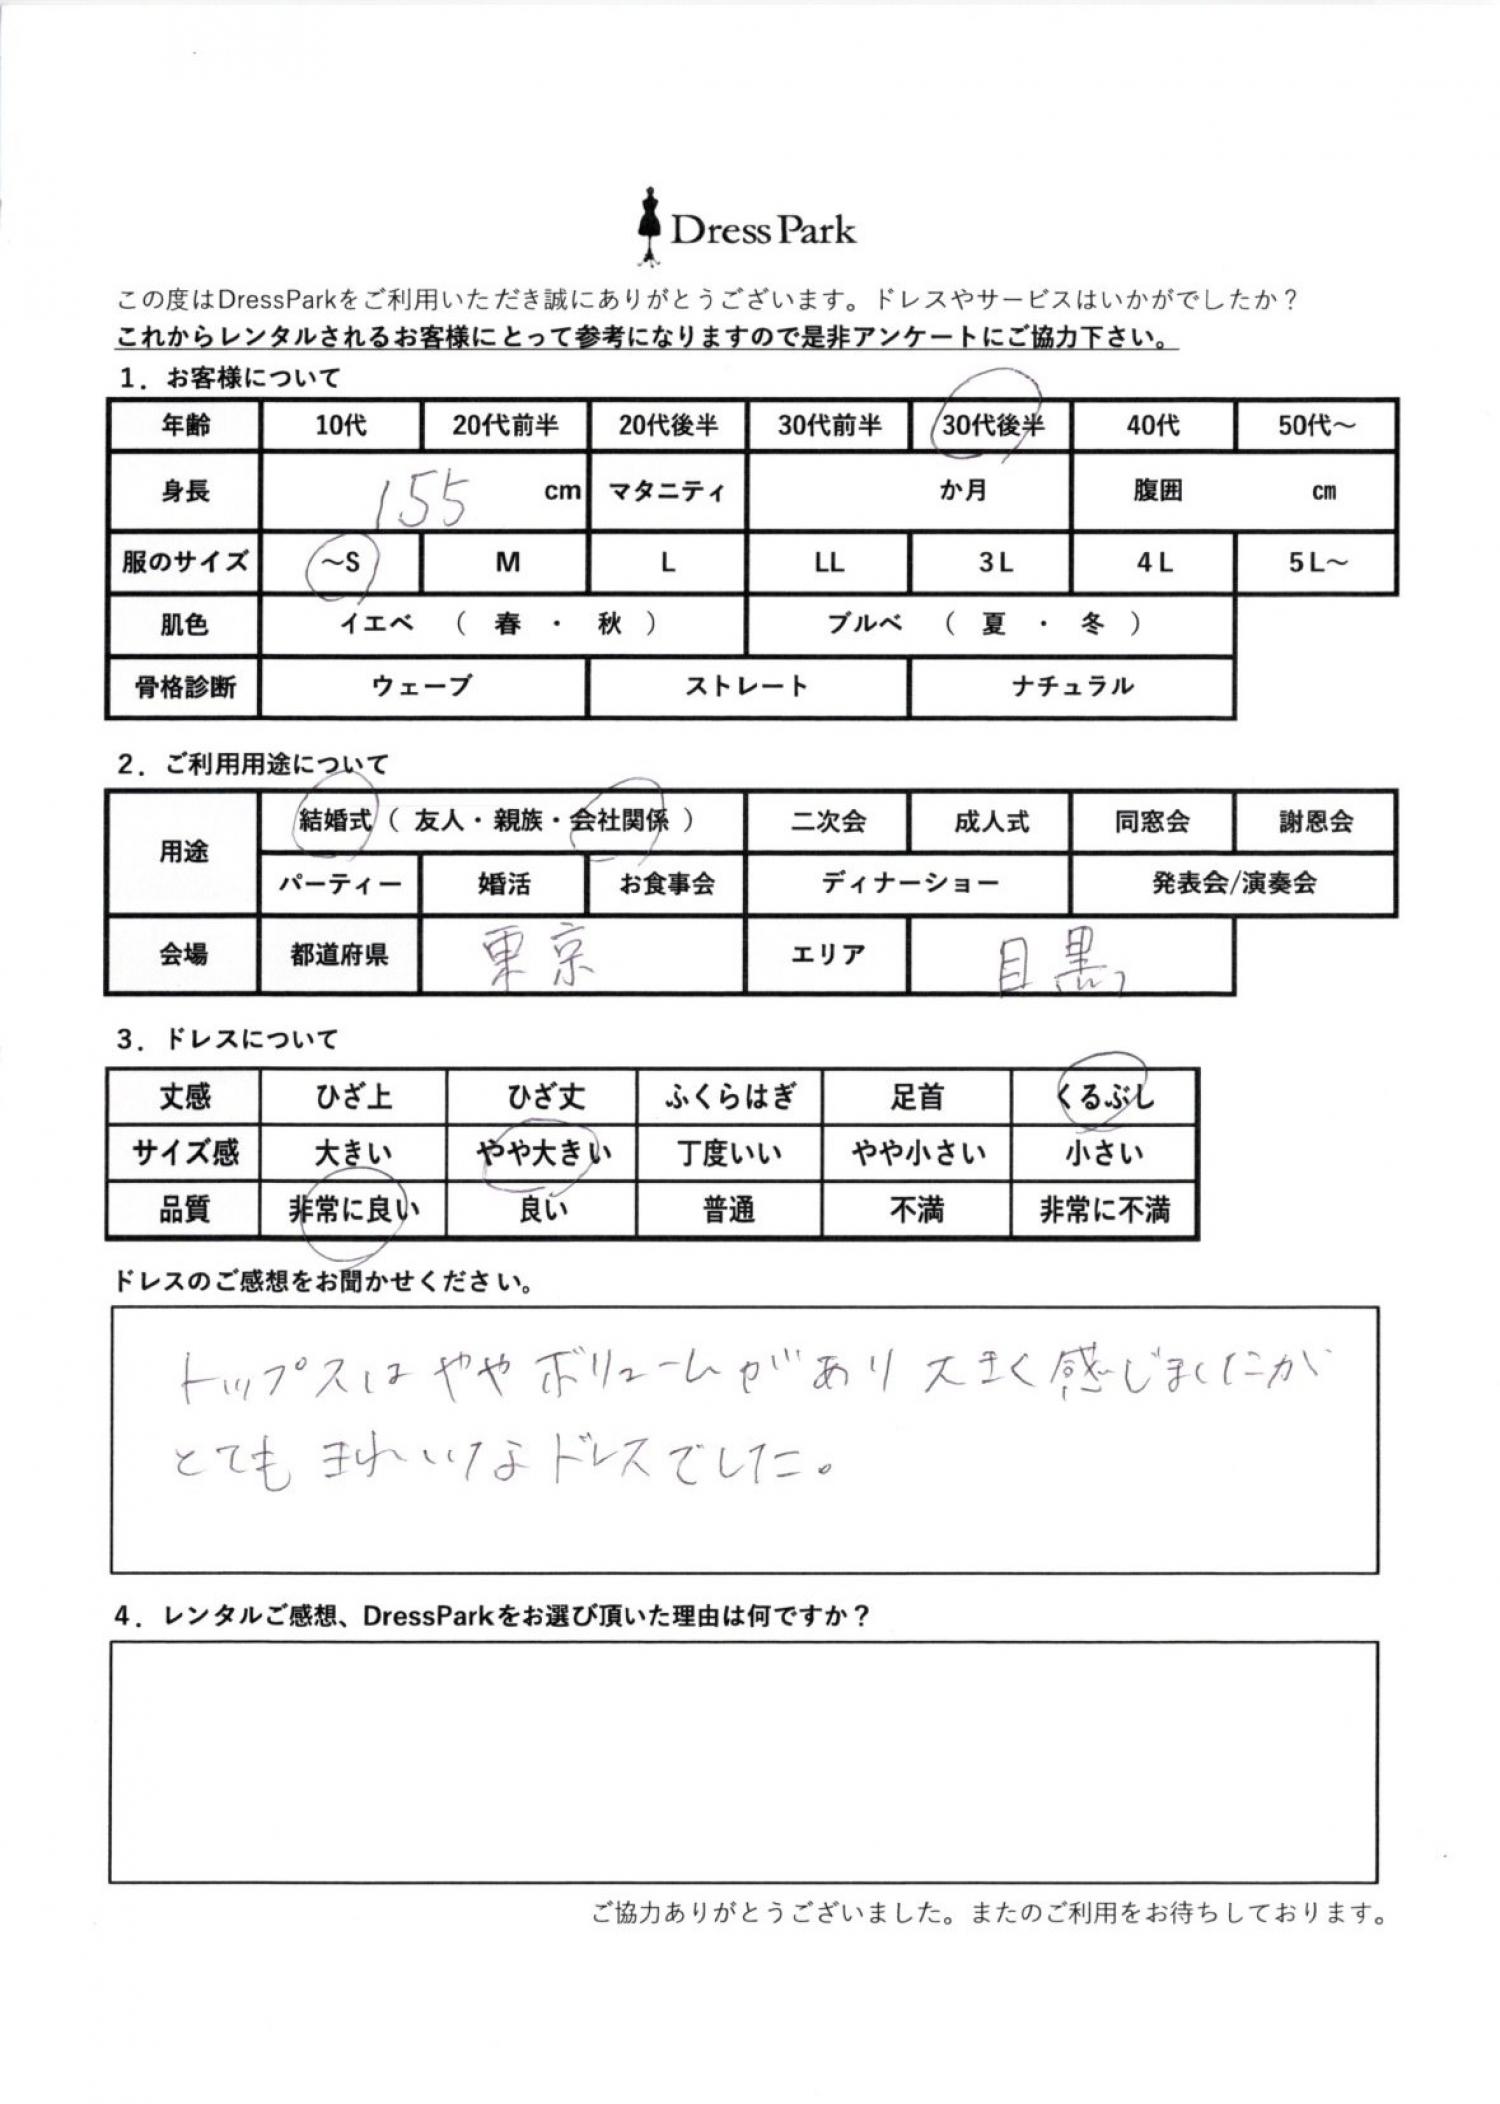 Dress Park
この度はDressParkをご利用いただき誠にありがとうございます。ドレスやサービスはいかがでしたか？
これからレンタルされるお客様にとって参考になりますので是非アンケートにご協力下さい。
1．お客様について
年齢 10代 20代前半 20代後半 30代前半 30代後半 40代 50代～
身長 155 cm マタニティ か月 腹囲 cm
服のサイズ ～S M L LL 3L 4L 5L～
肌色 イエベ （ 春 ・ 秋 ） ブルべ （ 夏 ・ 冬 ）
骨格診断 ウェーブ ストレート ナチュラル
2．ご利用用途について
用途 結婚式（ 友人・親族・会社関係 ） 二次会 成人式 同窓会 謝恩会
パーティー 婚活 お食事会 ディナーショー 発表会/演奏会
会場 都道府県 東京 エリア 目黒
3．ドレスについて
丈感 ひざ上 ひざ丈 ふくらはぎ 足首 くるぶし
サイズ感 大きい やや大きい 丁度いい やや小さい 小さい
品質 非常に良い 良い 普通 不満 非常に不満
ドレスのご感想をお聞かせください。
トップスはややボリュームがあり大きく感じましたが
とてもきれいなドレスでした。
4．レンタルご感想、DressParkをお選び頂いた理由は何ですか？
ご協力ありがとうございました。またのご利用をお待ちしております。